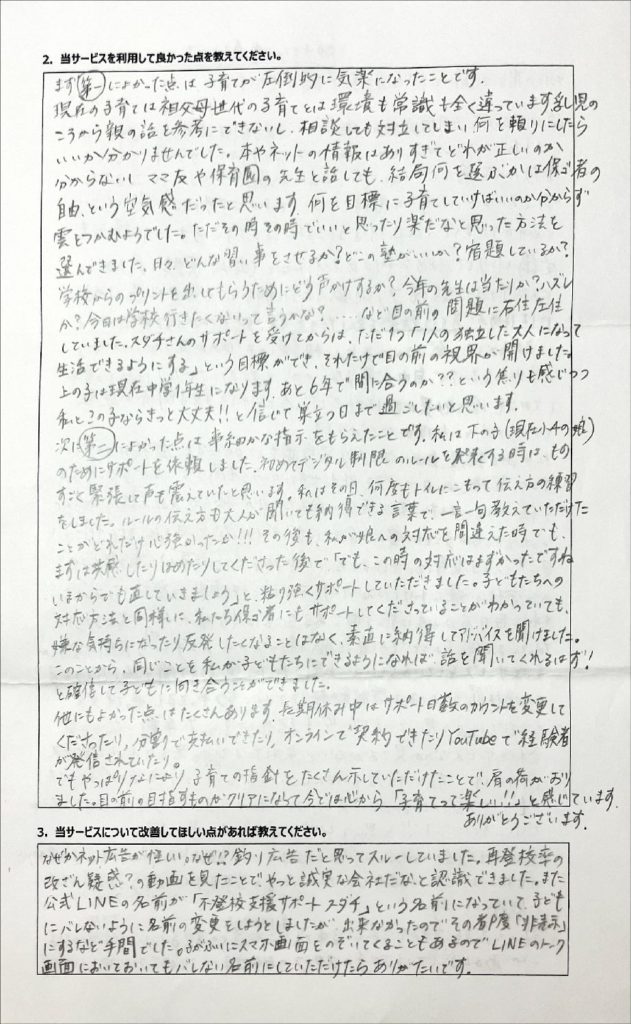 2. 当サービスを利用して良かった点を教えてください。
まず第一によかった点は 子育てが圧倒的に気楽になったことです.
現在の子育ては祖父母世代の子育てとは環境も常識も全く違っています.乳児の
ころから親の話を参考にできないし、相談しても対立してしまい何を頼りにしたら
いいか分かりませんでした。本やネットの情報はありすぎてどれが正しいのか
分からないし ママ友や保育園の先生と話しても、結局何を選ぶかは保ゴ者の
自由、という空気感だったと思います. 何を目標に子育てしていけばいいのか分からず
雲をつかむようでした。ただその時その時でいいと思ったり楽だなと思った方法を
選んできました。日々、どんな習い事をさせるか?どこの塾がいいか?宿題しているか?
学校からのプリントを出してもらうためにどう声かけするか? 今年の先生は当たりか?ハズレ
か?今日は学校行きたくないって言うかな?.....など目の前の問題に右往左往
していました。スダチさんのサポートを受けてからは、ただ1つ「1人の独立した大人になって
生活できるようにする」という目標ができ、それだけで目の前の視界が開けました。
上の子は現在中学1年生になります。あと6年で間に合うのか??という焦りも感じつつ
私とこの子ならきっと大丈夫!!と信じて巣立つ日まで過ごしたいと思います.
次に第二によかった点は事細かな指示をもらえたことです。私は下の子(現在小4の娘)
のためにサポートを依頼しました。初めてデジタル制限のルールを発表する時は、もの
すごく緊張して声も震えていたと思います。私はその日、何度もトイレにこもって伝え方の練習
をしました。ルールの伝え方も大人が聞いても納得できる言葉で、一言一句教えていただけた
ことがどれだけ心強かったか!!! その後も、私が娘への対応を間違えた時でも、
まずは共感したりほめたりしてくださった後で「でも、この時の対応はまずかったですね
いまからでも直していきましょう」と、粘り強くサポートしていただきました。子どもたちへの
対応方法と同様に、私たち保ゴ者にもサポートしてくださっていることがわかっていても、
嫌な気持ちになったり反発したくなることはなく、素直に納得してアドバイスを聞けました。
このことから、同じことを私が子どもたちにできるようになれば、話を聞いてくれるはず!
と確信して子どもに向き合うことができました。
他にもよかった点はたくさんあります。長期休み中はサポート日数のカウントを変更して
くださったり、分割で支払いできたり、オンラインで契約できたりYouTubeで経験者
が発信されていたり。
でもやっぱりなにより 子育ての指針をたくさん示していただけたことで、肩の荷がおり
ました。目の前の目指すものがクリアになって今では心から「子育てって楽しい!!」と感じています.
ありがとうございます.
3. 当サービスについて改善してほしい点があれば教えてください。
なぜかネット広告が怪しい。なぜ!?釣り広告だと思ってスルーしていました。再登校率の
改ざん疑惑?の動画を見たことで、やっと誠実な会社だなと認識できました。また
公式LINEの名前が「不登校支援サポートスダチ」という名前になっていて、子ども
にバレないように名前の変更をしようとしましたが、出来なかったのでその都度「非表示」
にするなど手間でした。子がふいにスマホ画面をのぞいてくることもあるのでLINEのトーク
画面においておいてもバレない名前にしていただけたらありがたいです。